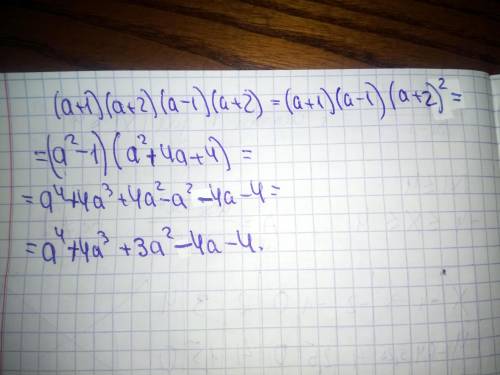 (a+1)(a+2)(a-1)(a+2) = (a+1)(a-1)(a+2)² =
=(a²-1)(a²+4a+4) =
= a⁴+4a³+4a²-a²-4a-4 =
= a⁴+4a³+3a²-4a-4.